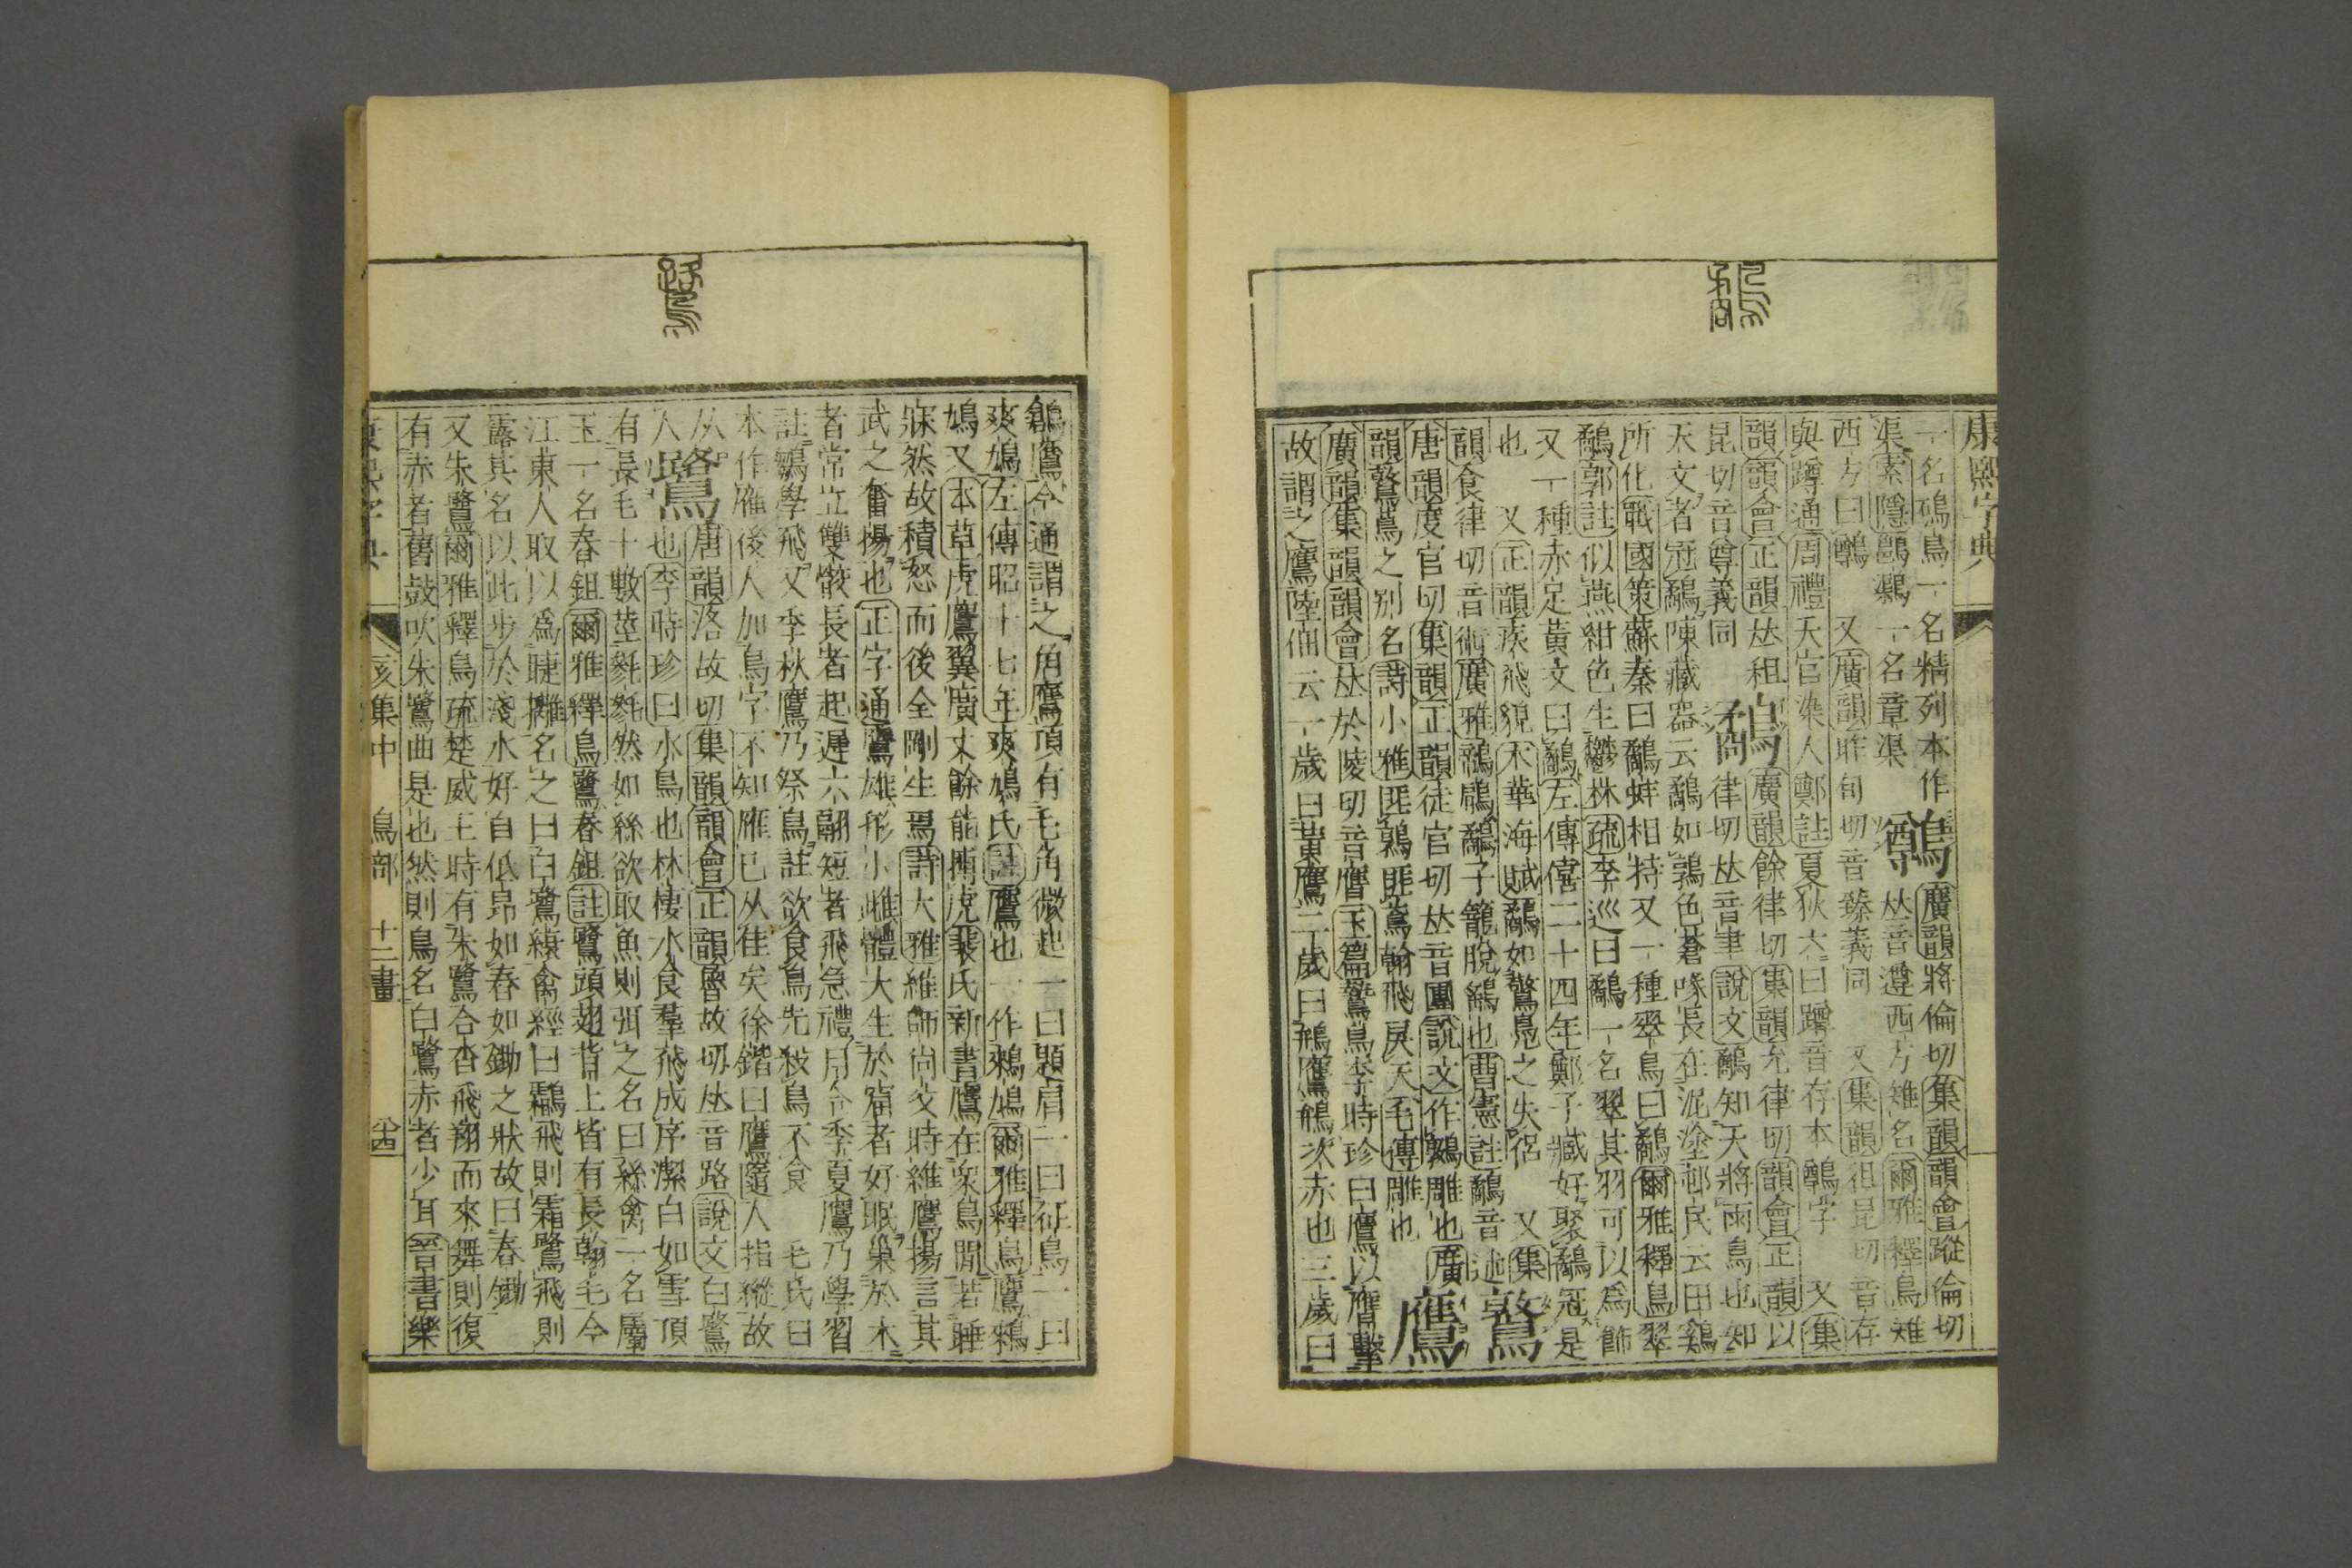 康熙字典
一名鵶鳥一名精列本作
渠索隱鶂鸈一名章渠
鷷廣韻將倫切集韻韻會蹤倫切
𠀤音遵西方雉名爾雅釋鳥雉
西方曰鷷 又廣韻昨旬切音臻義同 又集韻徂昆切音存
與蹲通周禮天官染人鄭註夏狄六曰蹲音存本鷷字 又集
韻韻會正韻𠀤租
昆切音尊義同
鷸廣韻餘律切集韻允律切韻會正韻以
律切𠀤音聿說文鷸知天將雨鳥也知
天文者冠鷸陳藏器云鷸如鶉色蒼喙長在泥塗邨民云田鷄
所化戰國策蘇秦曰鷸蚌相持又一種翠鳥曰鷸爾雅釋鳥翠
鷸郭註似燕紺色生鬱林疏李巡曰鷸一名翠其羽可以爲飾
又一種赤足黃文曰鷸左傳僖二十四年鄭子臧好聚鷸冠是
也 又正韻疾飛貌木華海賦鷸如驚鳧之失侶 又集
韻食律切音術廣雅鷸鷉鷸子籠脫鷂也曹憲註鷸音述
鷻
唐韻度官切集韻正韻徒官切𠀤音團說文作鷻雕也廣
韻鷻鳶之別名詩小雅匪鶉匪鳶翰飛戾天毛傳雕也
鷹
廣韻集韻韻會𠀤於陵切音膺玉篇鷙鳥李時珍曰鷹以膺擊
故謂之鷹陸佃云一歲曰黃鷹二歲曰鴘鷹鴘次赤也三歲曰
鶬鷹今通謂之角鷹頂有毛角微起一曰題肩一曰征鳥一曰
爽鳩左傳昭十七年爽鳩氏註鷹也一作鷞鳩爾雅釋鳥鷹鶆
鳩又本草虎鷹翼廣丈餘能搏虎裴氏新書鷹在衆鳥閒若睡
寐然故積怒而後全剛生焉詩大雅維師尚父時維鷹揚言其
武之奮揚也正字通鷹雄形小雌體大生於窟者好眠巢於木
者常立雙骹長者起遲六翮短者飛急禮月令季夏鷹乃學習
註鶵學飛又季秋鷹乃祭鳥註欲食鳥先殺鳥不食 毛氏曰
本作䧹後人加鳥字不知䧹已从隹矣徐鍇曰鷹隨人指縱故
从人
鷺
唐韻洛故切集韻韻會正韻魯故切𠀤音路說文白鷺
也李時珍曰水鳥也林棲水食羣飛成序潔白如雪頂
有長毛十數莖毿毿然如絲欲取魚則弭之名曰絲禽一名屬
玉一名舂鉏爾雅釋鳥鷺舂鉏註鷺頭翅背上皆有長翰毛今
江東人取以爲睫攡名之曰白鷺縗禽經曰鸘飛則霜鷺飛則
露其名以此步於淺水好自低昂如舂如鋤之狀故曰舂鋤
又朱鷺爾雅釋鳥疏楚威王時有朱鷺合沓飛翔而來舞則復
有赤者舊鼓吹朱鷺曲是也然則鳥名白鷺赤者少耳晉書樂
康熙字典 亥集中 鳥部 十二畫